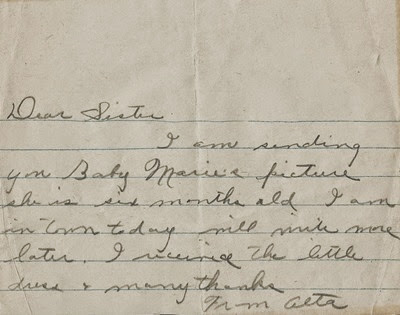 Dear Sister
I am sending
you Baby Marie's picture
she is six months old I am
in town today will write more
later. I received the little
dress & many thanks
From Alta